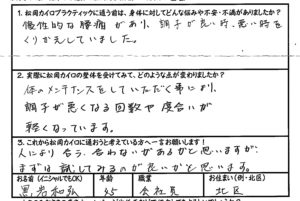 1.松岡カイロプラクティックに通う前は、身体に対してどんな悩みや不安・不満がありましたか?
慢性的な腰痛があり、調子が良い時、悪い時を
くりかえしていました。
2.実際に松岡カイロの整体を受けてみて、どのような点が変わりましたか?
体のメンテナンスをしていただく事により
調子が悪くなる回数や度合いが
軽くなっています。
3.これから松岡カイロに通おうと考えている方へ一言お願いします!
人により合う、合わないがあるかと思いますが、
まずは試してみるのが良いかと思います。
お名前(イニシャルでもOK) 年齢 職業 お住まい(例・北区)
黒岩和弘 45 会社員 北区